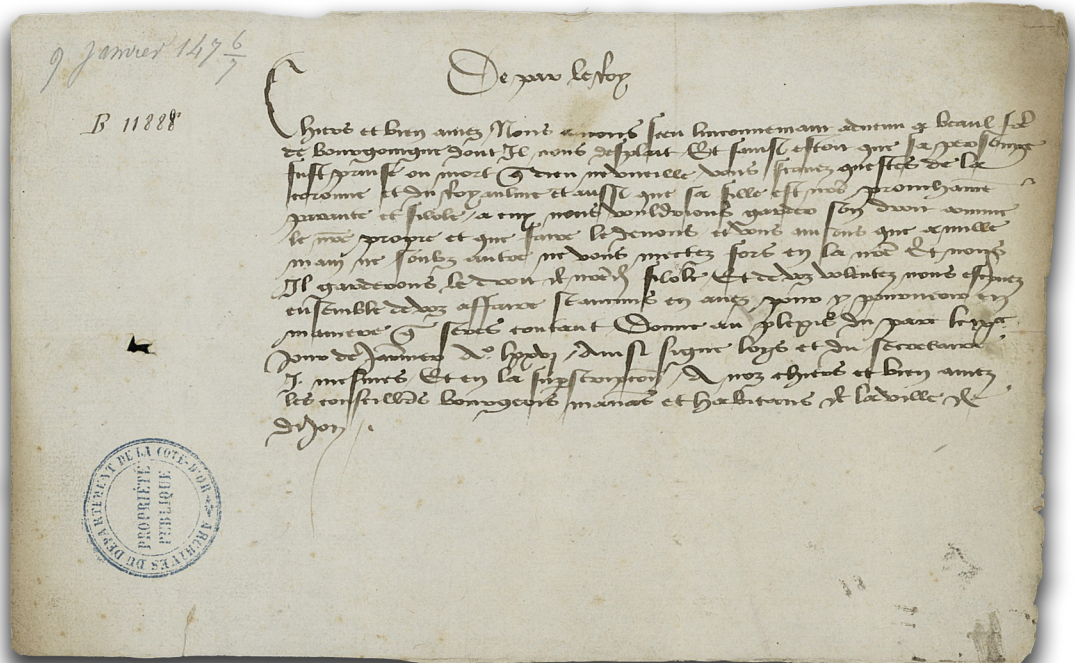 9 Janvier 147 6/7
B 11888
De par le Roy
Chiers et bien amez Nous avons sceu linconvenient advenu a beau frere
de bourgoingne dont Il nous desplait Et sainsi estoit que sa personne
fust prinse ou mort que dieu ne vueille vous savez questes de la
coronne et du Royaulme et aussi que sa fille est nostre prouchaine
parente et filole a qui nous vouldrions garder son droit comme
le nostre propre et que faire le devons et vous avisons que a nulle
main ne soubz autre ne vous mectez fors en la nostre Et nous
Il garderons le droit de nostred filole Et de voz voluntez nous escrivez
ensemble de voz affaires se aucuns en avez pour y pourveoir en
maniere que serez contant Donne au plesis du parc le IXe
Jour de Janvier Ao lxxvi Ainsi signe loys et du secretaire
J. mesmes Et en la superscription A noz chiers et bien amez
les conseilliers bourgois manans et habitans de la ville de
diJon
DEPARTEMENT DE LA COTE-D'OR
ARCHIVES DU
PROPRIÉTÉ
PUBLIQUE